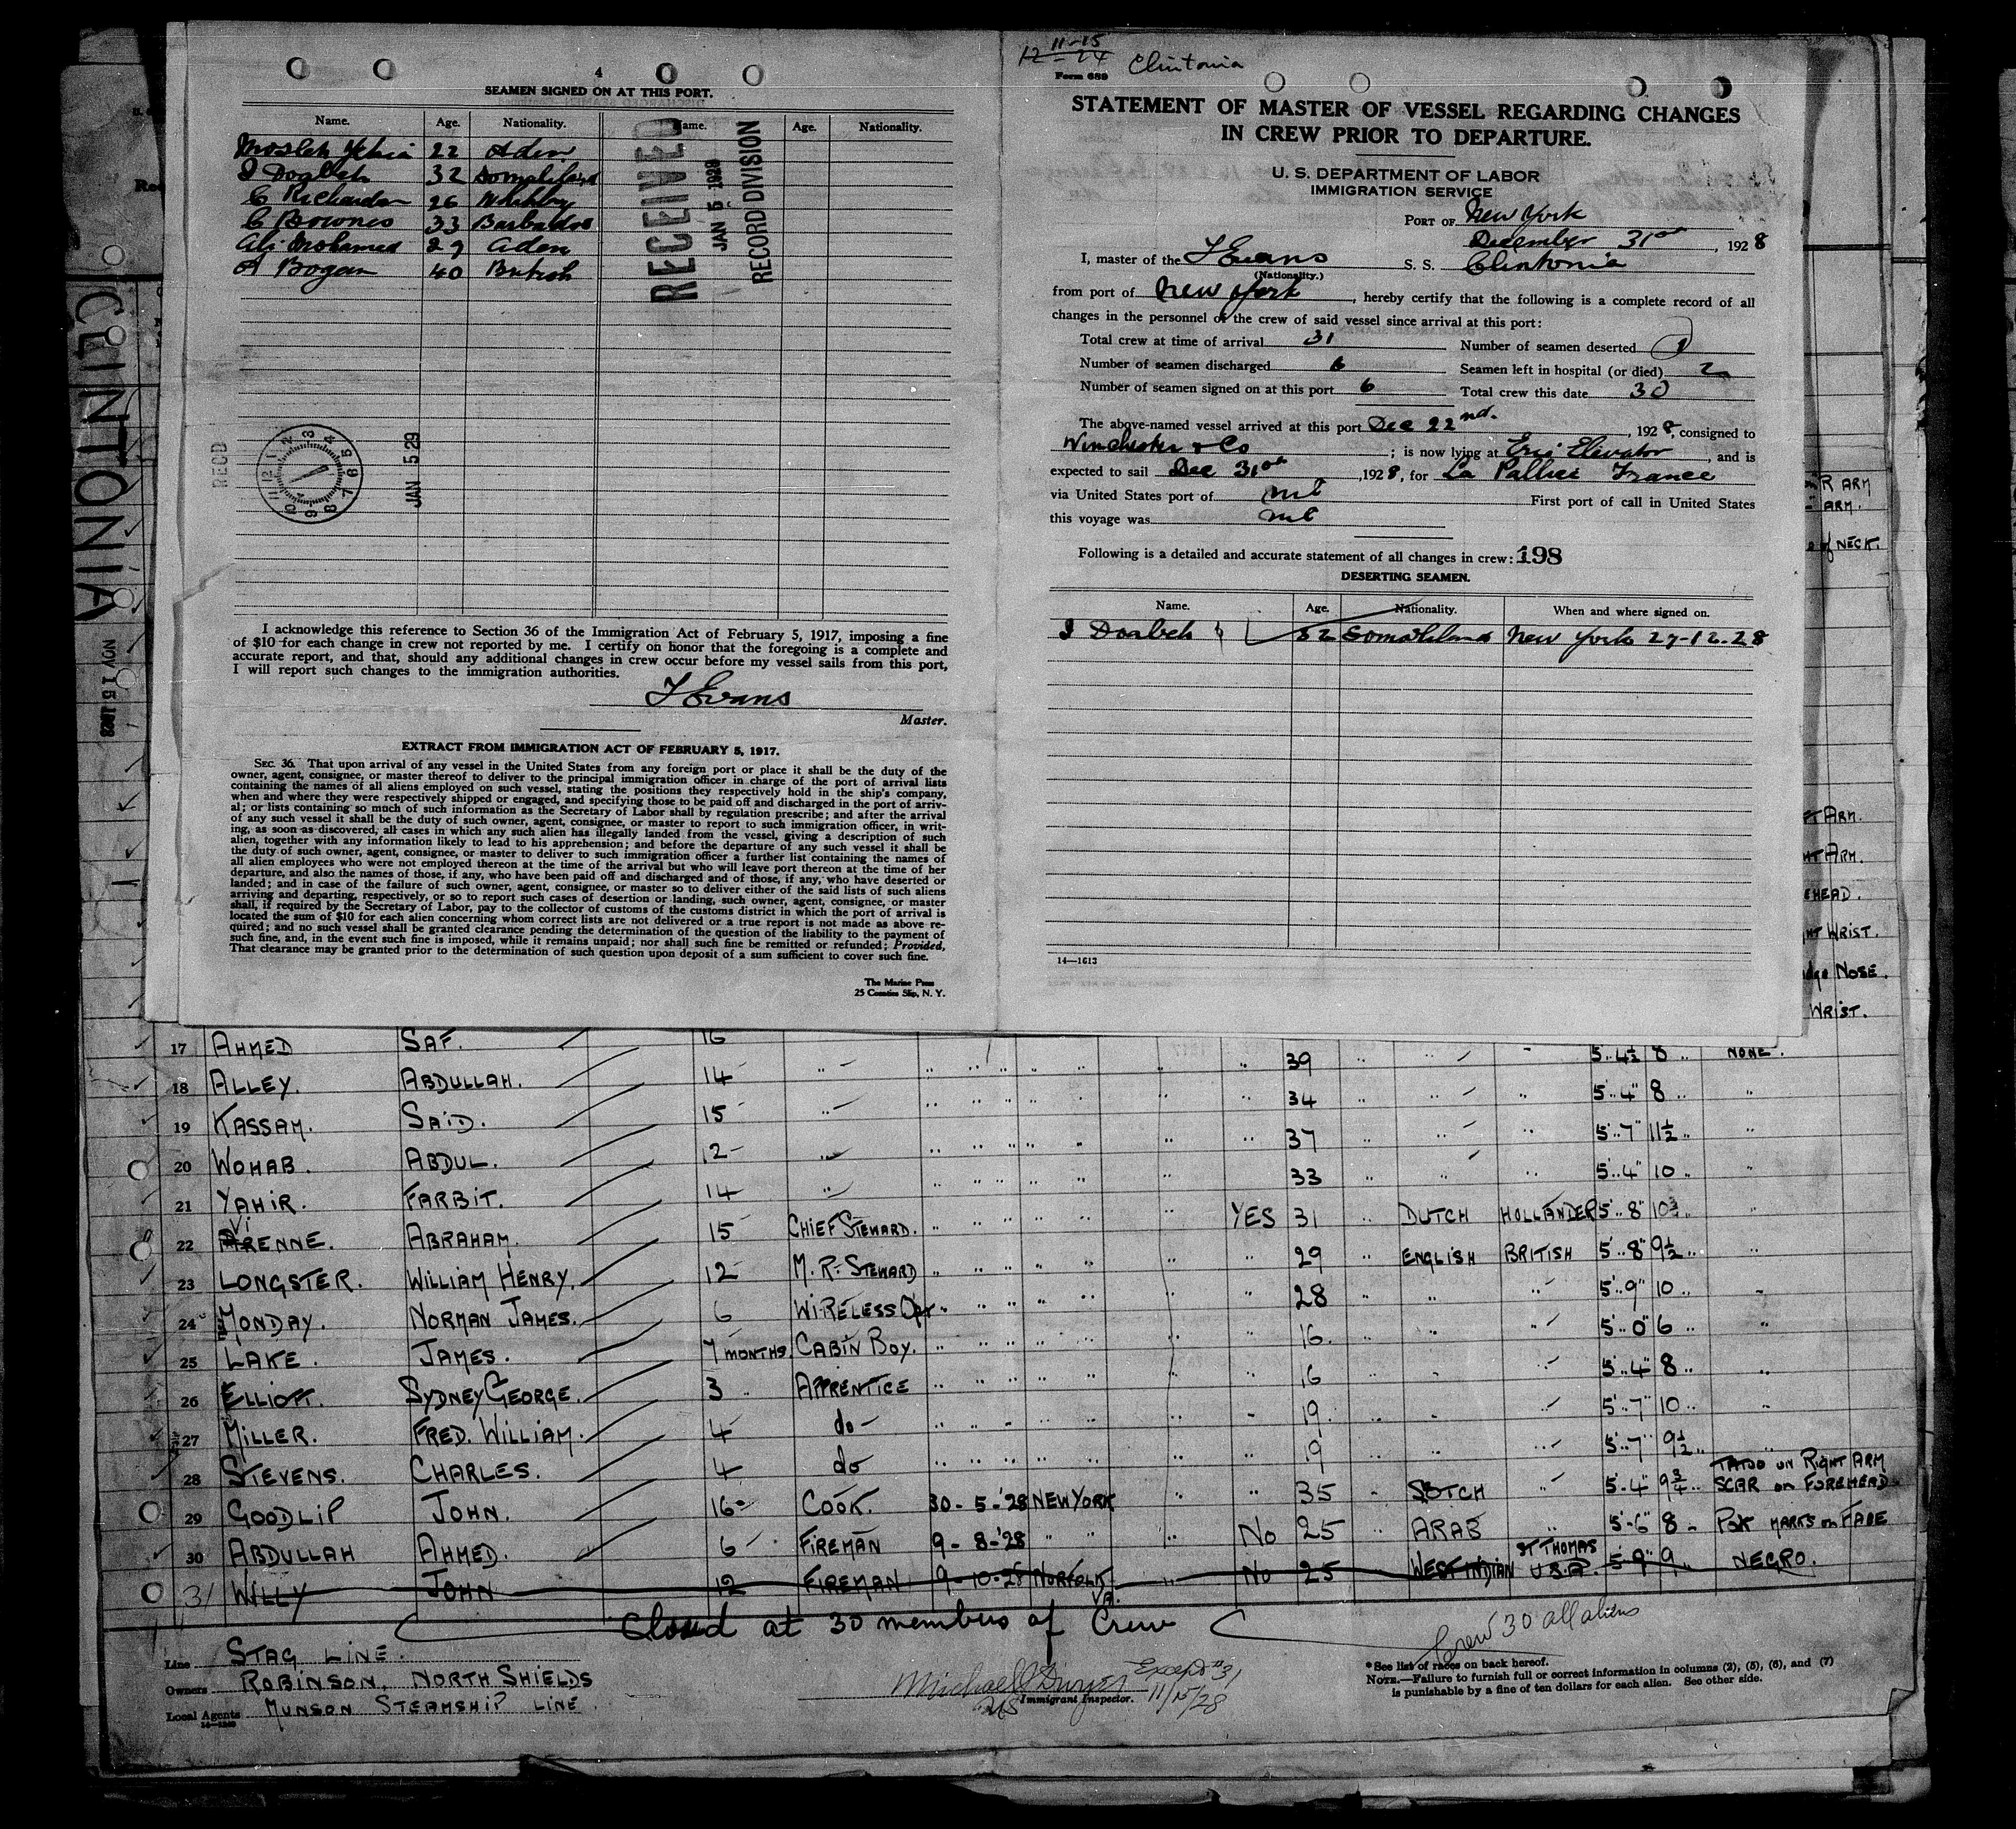 4
SEAMEN SIGNED ON AT THIS PORT.
Name. Age. Nationality. Name. Age. Nationality.
Mosleh Yehia 22 Aden
32 Somaliland
C Richardson 26 Whitby
C Bownes 33 Barbados
Ali Mohamed 27 Aden
A Bogan 40 British
RECEIVED
JAN 5 1929
RECORD DIVISION
RECD
JAN 5 29
I acknowledge this reference to Section 36 of the Immigration Act of February 5, 1917, imposing a fine
of $10 for each change in crew not reported by me. I certify on honor that the foregoing is a complete and
accurate report, and that, should any additional changes in crew occur before my vessel sails from this port,
I will report such changes to the immigration authorities.
J Evans
Master.
EXTRACT FROM IMMIGRATION ACT OF FEBRUARY 5, 1917.
SEC. 36. That upon arrival of any vessel in the United States from any foreign port or place it shall be the duty of the
owner, agent, consignee, or master thereof to deliver to the principal immigration officer in charge of the port of arrival lists
containing the names of all aliens employed on such vessel, stating the positions they respectively hold in the ship's company,
when and where they were respectively shipped or engaged, and specifying those to be paid off and discharged in the port of arriv-
al; or lists containing so much of such information as the Secretary of Labor shall by regulation prescribe; and after the arrival
of any such vessel it shall be the duty of such owner, agent, consignee, or master to report to such immigration officer, in writ-
ing, as soon as discovered, all cases in which any such alien has illegally landed from the vessel, giving a description of such
alien, together with any information likely to lead to his apprehension; and before the departure of any such vessel it shall be
the duty of such owner, agent, consignee, or master to deliver to such immigration officer a further list containing the names of
all alien employees who were not employed thereon at the time of the arrival but who will leave port thereon at the time of her
departure, and also the names of those, if any, who have been paid off and discharged and of those, if any, who have deserted or
landed; and in case of the failure of such owner, agent, consignee, or master so to deliver either of the said lists of such aliens
arriving and departing, respectively, or so to report such cases of desertion or landing, such owner, agent, consignee, or master
shall, if required by the Secretary of Labor, pay to the collector of customs of the customs district in which the port of arrival is
located the sum of $10 for each alien concerning whom correct lists are not delivered or a true report is not made as above re-
quired; and no such vessel shall be granted clearance pending the determination of the question of the liability to the payment of
such fine, and, in the event such fine is imposed, while it remains unpaid; nor shall such fine be remitted or refunded; Provided,
That clearance may be granted prior to the determination of such question upon deposit of a sum sufficient to cover such fine.
The Marine Press
25 Coenties Slip, N. Y.
11-15
12-24
Form 689 Clintonia
STATEMENT OF MASTER OF VESSEL REGARDING CHANGES
IN CREW PRIOR TO DEPARTURE.
U. S. DEPARTMENT OF LABOR
IMMIGRATION SERVICE
PORT OF New York
December 31st, 1928
I, master of the J Evans S. S. Clintonia
(Nationality.)
from port of New York, hereby certify that the following is a complete record of all
changes in the personnel of the crew of said vessel since arrival at this port:
Total crew at time of arrival 31 Number of seamen deserted 1
Number of seamen discharged 6 Seamen left in hospital (or died) 2
Number of seamen signed on at this port 6 Total crew this date 30
The above-named vessel arrived at this port Dec 22nd., 1928, consigned to
Winchester & Co; is now lying at Erie Elevator, and is
expected to sail Dec 31st, 1928, for La Pallice France
via United States port of nil First port of call in United States
this voyage was nil
Following is a detailed and accurate statement of all changes in crew: 198
DESERTING SEAMEN.
Name. Age. Nationality. When and where signed on.
32 Somaliland New York 27-12-28
14—1613
CLINTONIA
NOV 15 1928
R ARM
ARM.
of NECK.
ARM.
ARM.
WRIST.
NOSE.
WRIST.
17 AHMED SAF. 16 " 39 " " 5..4½ 8 .. NONE.
18 ALLEY. ABDULLAH. 14 " 34 " " 5..4" 8 .. "
19 KASSAM. SAID. 15 " 37 " " 5..7" 11½ .. "
20 WOHAB. ABDUL. 12 " 33 " " 5..4" 10 .. "
21 YAHIR. FARBIT. 14 "
22 VIRENNE. ABRAHAM. 15 CHIEF STEWARD. YES 31 " DUTCH HOLLANDER 5..8" 10¾ ..
23 LONGSTER. WILLIAM HENRY. 12 M.R. STEWARD " 29 " ENGLISH BRITISH 5..8" 9½ .. "
24 MONDAY. NORMAN JAMES. 6 WIRELESS Opr. " 28 " " 5..9" 10 .. "
25 LAKE. JAMES. 7 MONTHS. CABIN BOY. " 16. " " 5..0" 6 .. "
26 ELLIOTT. SYDNEY GEORGE. 3 .. APPRENTICE " 16 " 5..4" 8 ..
27 MILLER. FRED. WILLIAM. 4 do " 19. " " 5..7" 10 .. "
28 STEVENS. CHARLES. 4 do " 19 " " 5..7" 9½ .. "
29 GOODLIP JOHN. 16 COOK. 30-5-'28 NEW YORK " 35 " SCOTCH " 5-4" 9¾ TATOO ON RIGHT ARM SCAR on FOREHEAD
30 ABDULLAH AHMED. 6 FIREMAN 9-8-'28 " " NO 25 " ARAB " 5-6" 8 POK MARKS on FACE
31 WILLY JOHN 12 FIREMAN 9-10-28 NORFOLK VA. " NO 25 WEST INDIAN ST THOMAS U.S.A. 5-9" 9 NEGRO.
Closed at 30 members of Crew
Crew 30 all aliens
Line STAG LINE.
Owners ROBINSON, NORTH SHIELDS
Local Agents MUNSON STEAMSHIP LINE
Michael J Dwyer Except #31
US Immigrant Inspector. 11/15/28
*See list of races on back hereof.
NOTE.—Failure to furnish full or correct information in columns (2), (5), (6), and (7)
is punishable by a fine of ten dollars for each alien. See other side.